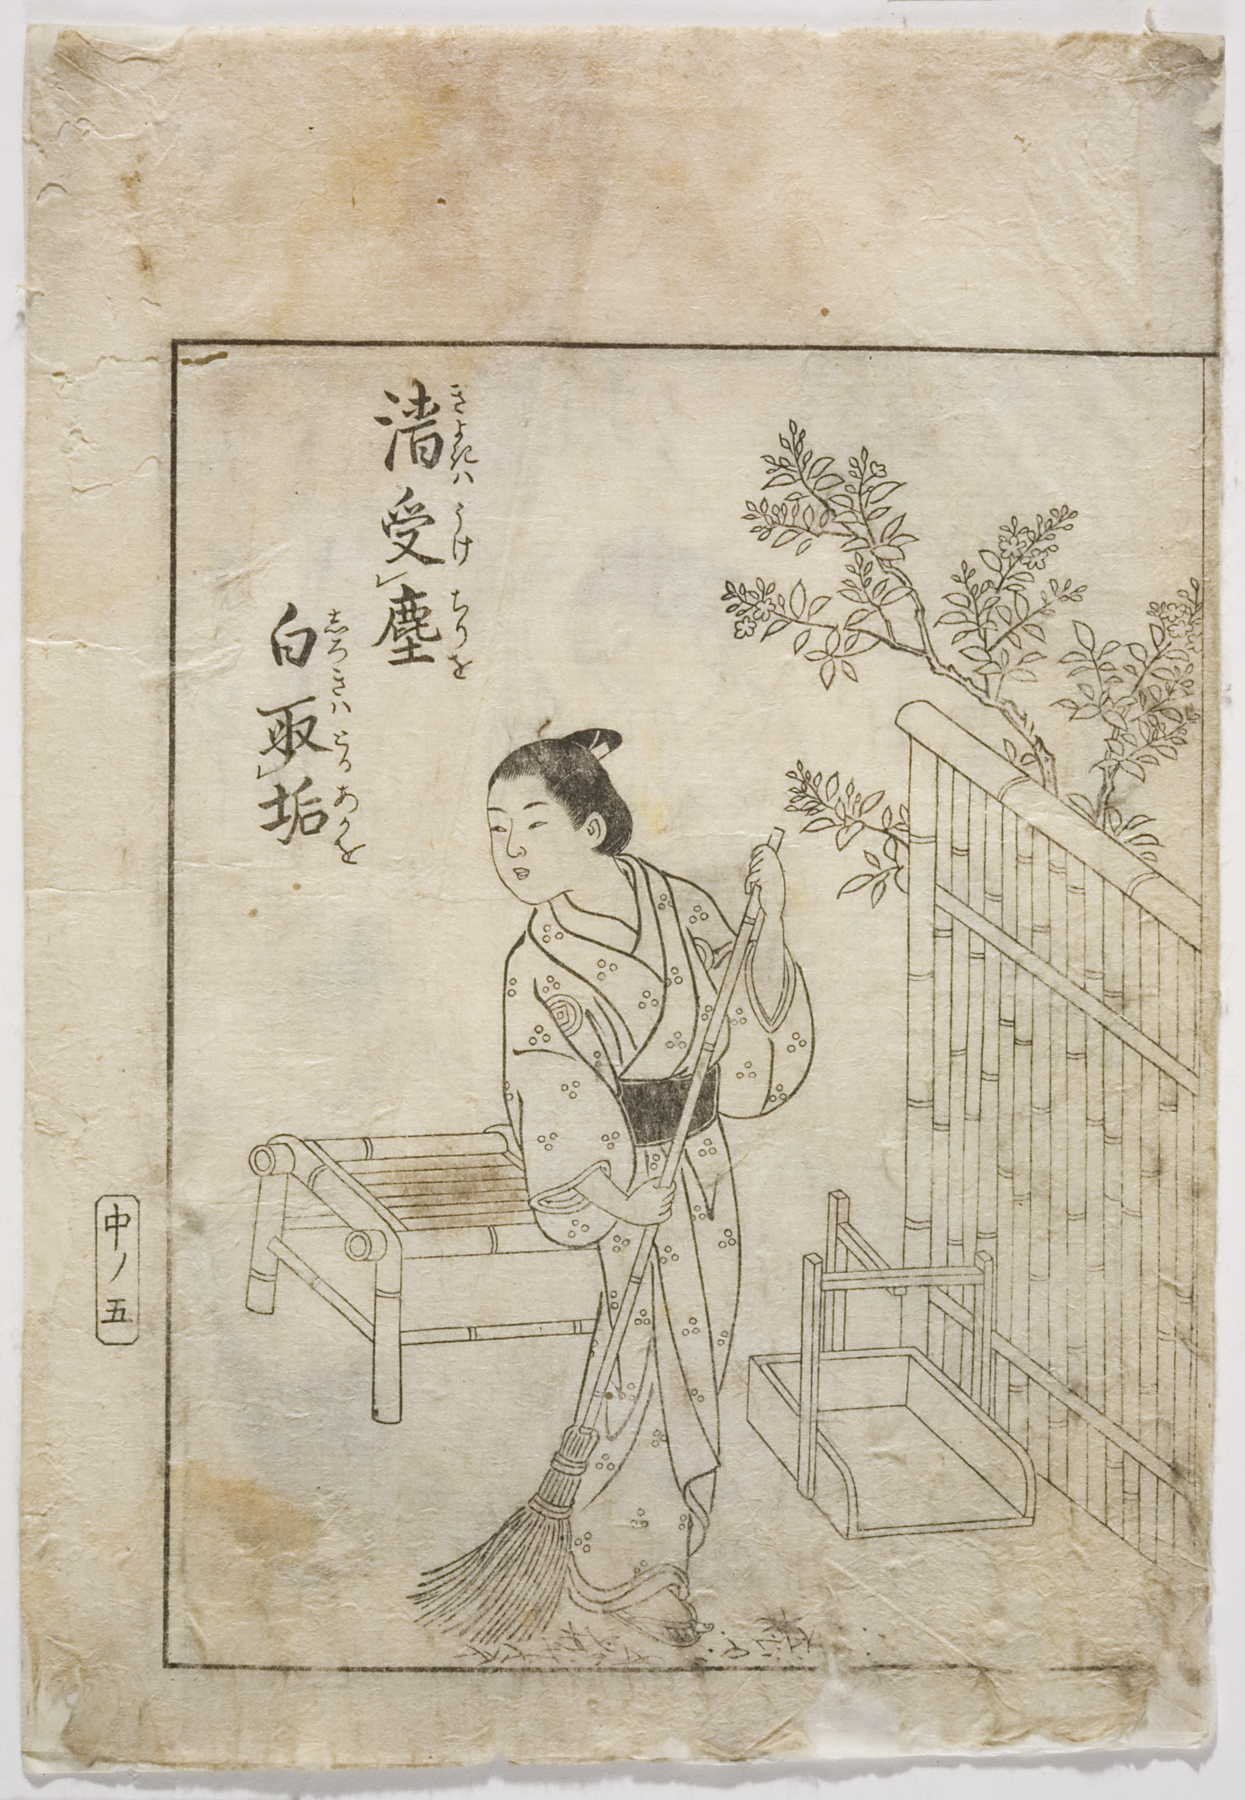 清受㆑塵
きよきハうけちりを
白取㆑垢
志ろきハとるあかを
中ノ五